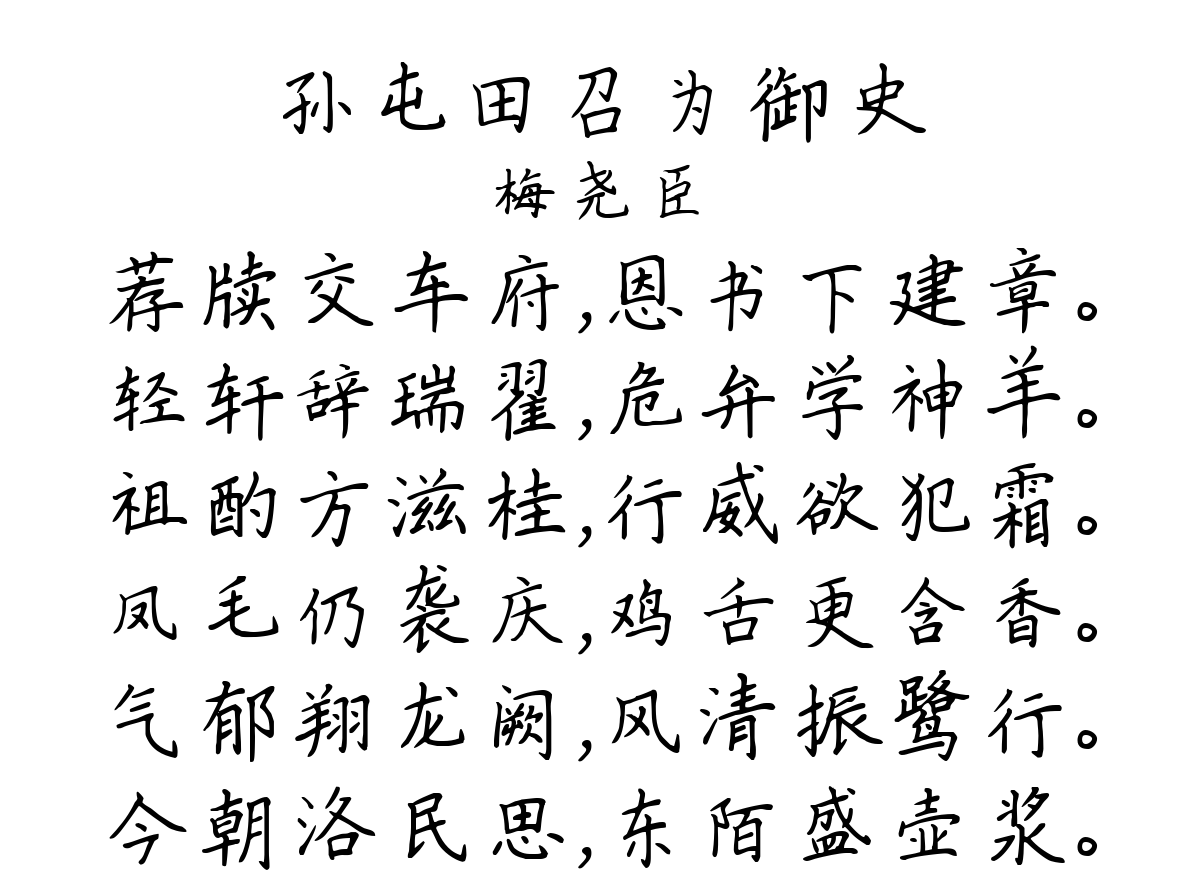 孙屯田召为御史
梅尧臣
荐牍交车府,恩书下建章。
轻轩辞瑞翟,危弁学神羊。
祖酌方滋桂,行威欲犯霜。
凤毛仍袭庆,鸡舌更含香。
气郁翔龙阙,风清振鹭行。
今朝洛民思,东陌盛壶浆。